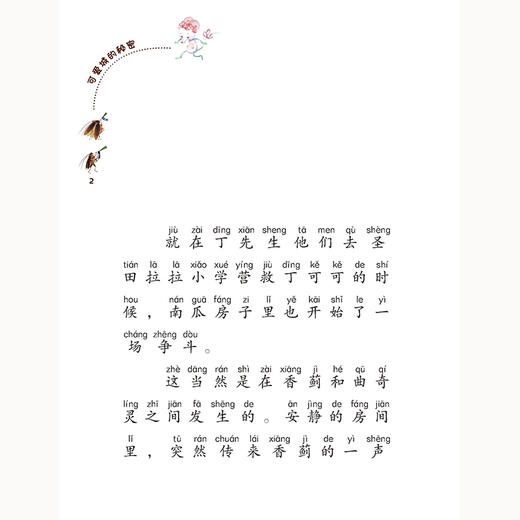 可爱城的秘密
2
jiù zài dīng xiān sheng tā men qù shèng
就在丁先生他们去圣
tián lā lā xiǎo xué yíng jiù dīng kě kě de shí
田拉拉小学营救丁可可的时
hou nán guā fáng zi lǐ yě kāi shǐ le yì
候，南瓜房子里也开始了一
cháng zhēng dòu
场争斗。
zhè dāng rán shì zài xiāng jì hé qū qí
这当然是在香蓟和曲奇
líng zhī jiān fā shēng de ān jìng de fáng jiān
灵之间发生的。安静的房间
lǐ tū rán chuán lái xiāng jì de yì shēng
里，突然传来香蓟的一声